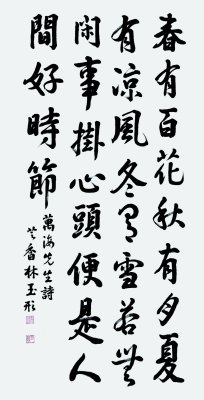 春有百花秋有月夏
有凉風冬有雪若無
閑事掛心頭便是人
間好時節
萬海先生詩
香林玉